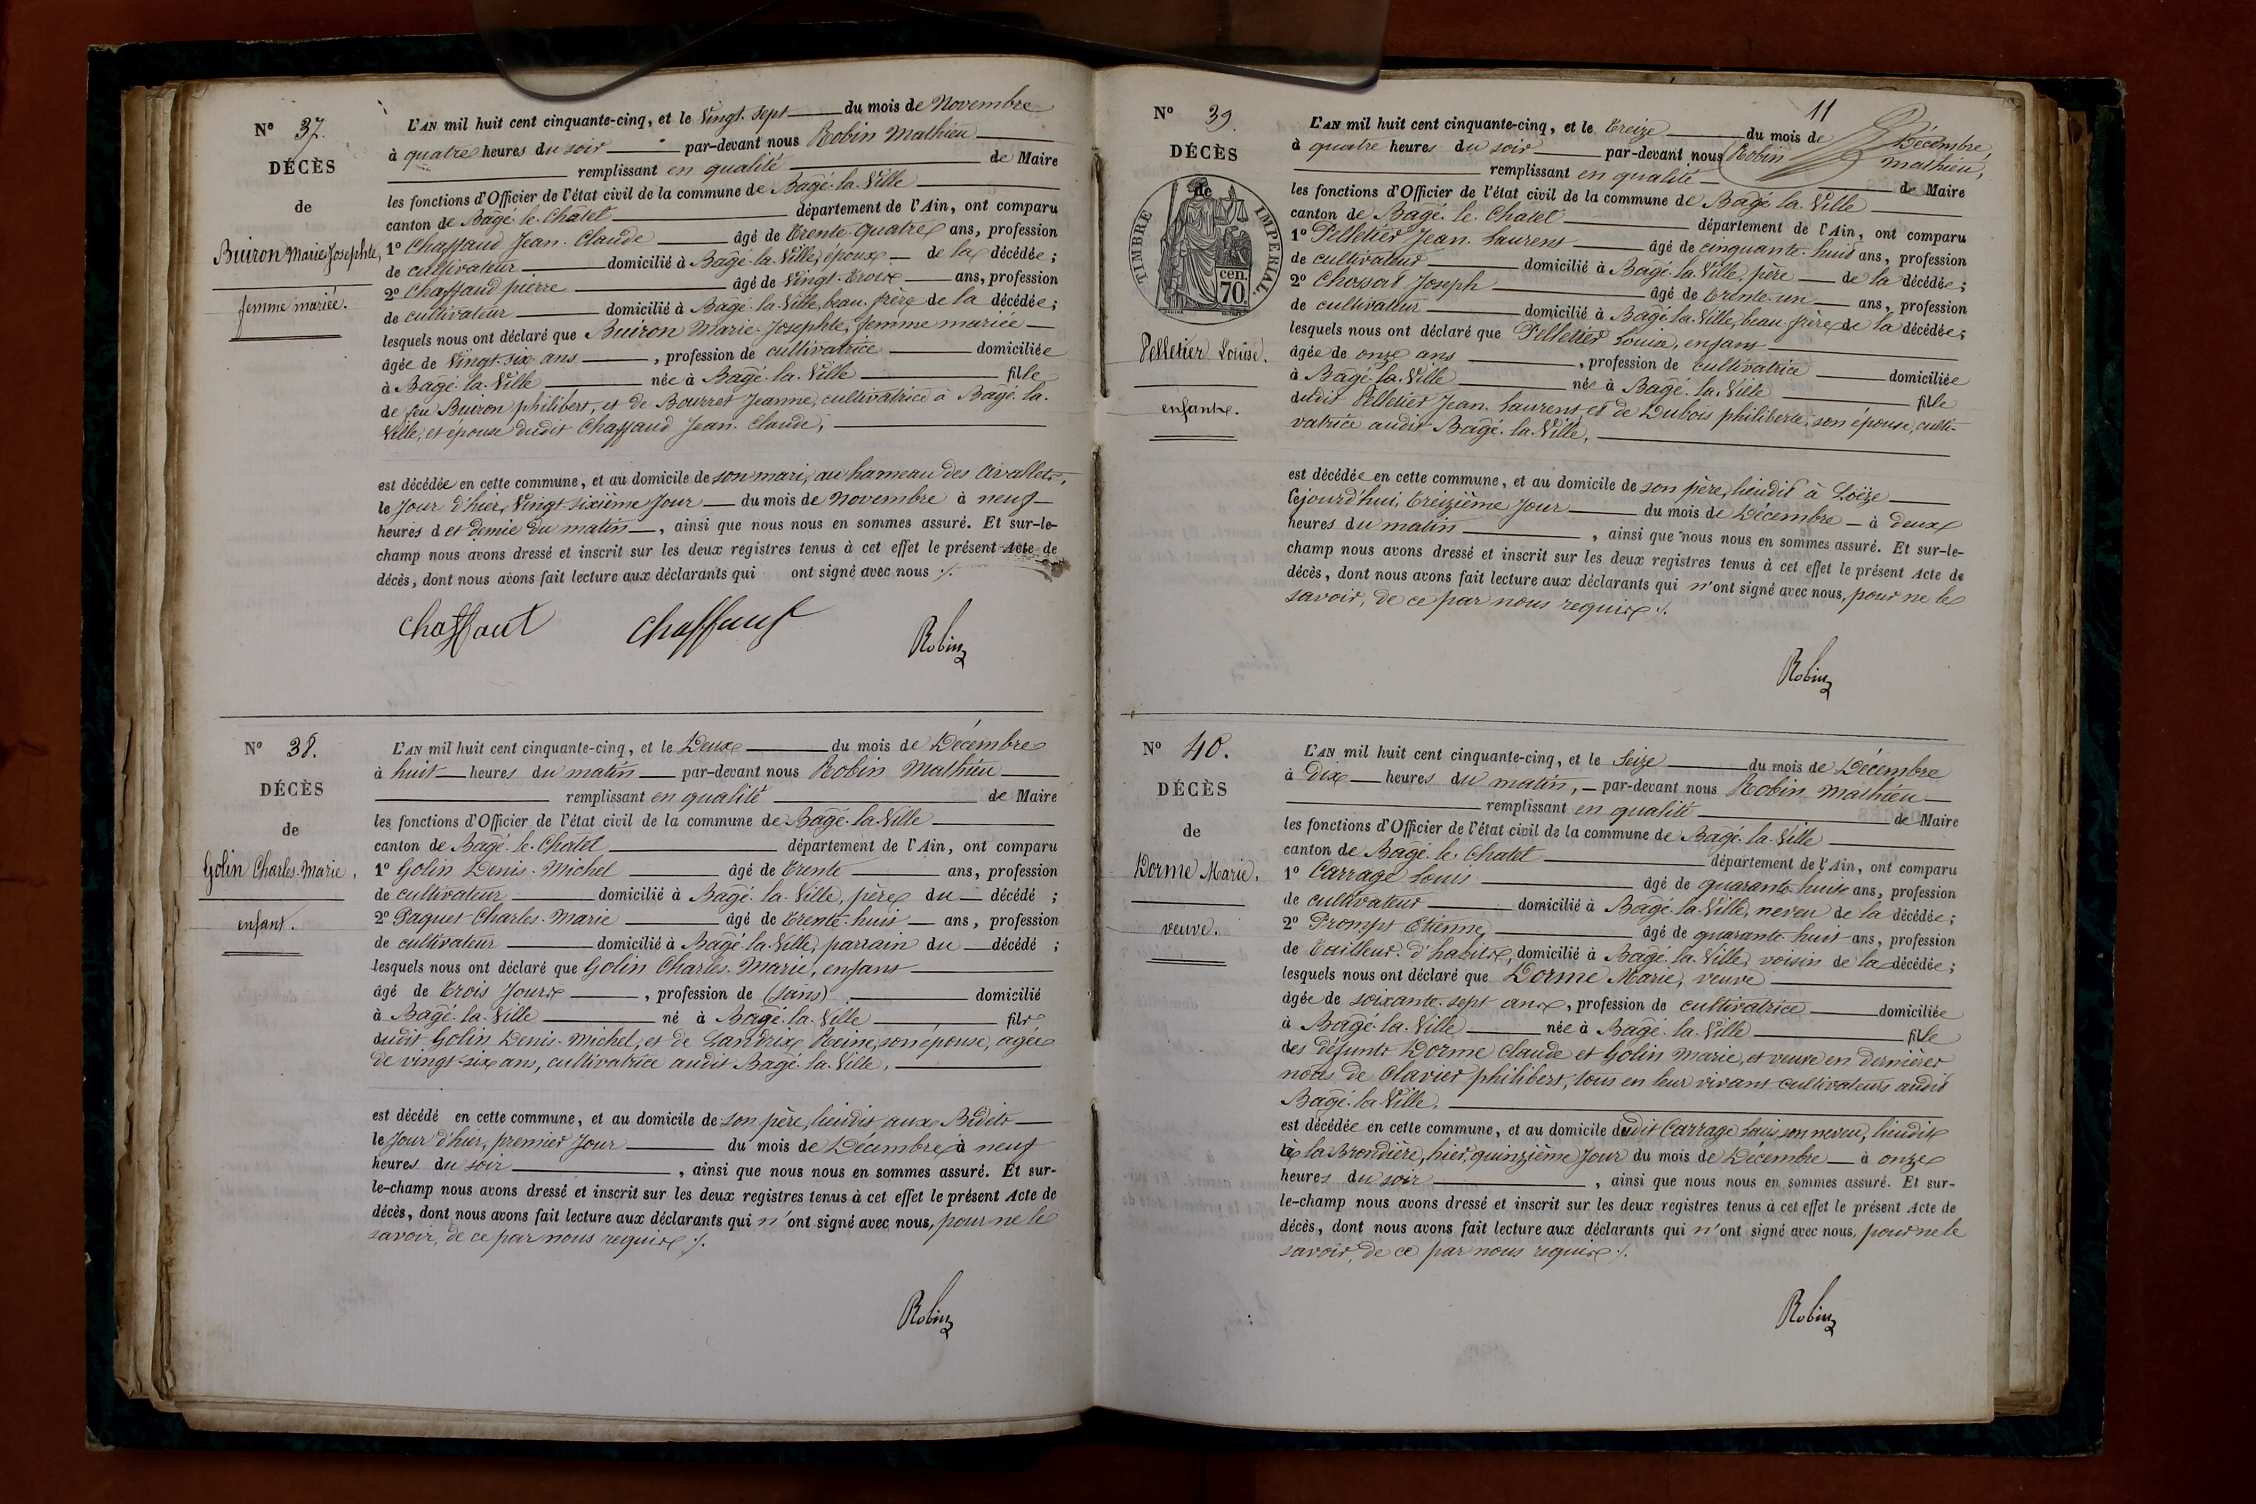 Nº 37.
DÉCÈS
de
Buiron Marie Josephte,
femme mariée.
L'AN mil huit cent cinquante-cinq, et le Vingt-sept du mois de Novembre
à quatre heures du soir par-devant nous Robin Mathieu
remplissant en qualité de Maire
les fonctions d'Officier de l'état civil de la commune de Bagé-la-Ville
canton de Bagé-le-Châtel département de l'Ain, ont comparu
1º Chaffaud Jean-Claude âgé de trente-quatre ans, profession
de cultivateur domicilié à Bagé-la-Ville, époux de la décédée ;
2º Chaffaud pierre âgé de vingt-trois ans, profession
de cultivateur domicilié à Bagé-la-Ville, beau-frère de la décédée ;
lesquels nous ont déclaré que Buiron Marie-Josephte, femme mariée
âgée de vingt-six ans, profession de cultivatrice domiciliée
à Bagé-la-Ville née à Bagé-la-Ville fille
de feu Buiron philibert, et de Bourret Jeanne, cultivatrice à Bagé-la-
Ville, et épouse dudit Chaffaud Jean-Claude,
est décédée en cette commune, et au domicile de son mari, au hameau des Avallets,
le Jour d'hier, Vingt-sixième Jour du mois de Novembre à neuf
heures d et demie du matin, ainsi que nous nous en sommes assuré. Et sur-le-
champ nous avons dressé et inscrit sur les deux registres tenus à cet effet le présent Acte de
décès, dont nous avons fait lecture aux déclarants qui ont signé avec nous ./.
Chaffaut Chaffaud Robin
Nº 38.
DÉCÈS
de
Golin Charles-Marie.
enfant.
L'AN mil huit cent cinquante-cinq, et le Deux du mois de Décembre
à huit heures du matin par-devant nous Robin Mathieu
remplissant en qualité de Maire
les fonctions d'Officier de l'état civil de la commune de Bagé-la-Ville
canton de Bagé-le-Châtel département de l'Ain, ont comparu
1º Golin Denis-Michel âgé de trente ans, profession
de cultivateur domicilié à Bagé-la-Ville, père du décédé ;
2º Paquet Charles-Marie âgé de trente-huit ans, profession
de cultivateur domicilié à Bagé-la-Ville, parrain du décédé ;
lesquels nous ont déclaré que Golin Charles-Marie, enfant
âgé de trois Jours, profession de (sans) domicilié
à Bagé-la-Ville né à Bagé-la-Ville fils
dudit Golin Denis-Michel, et de Landrix Reine, son épouse, âgée
de vingt-six ans, cultivatrice audit Bagé-la-Ville,
est décédé en cette commune, et au domicile de son père, lieudit aux Bidets
le Jour d'hier, premier Jour du mois de Décembre à neuf
heures du soir, ainsi que nous nous en sommes assuré. Et sur-
le-champ nous avons dressé et inscrit sur les deux registres tenus à cet effet le présent Acte de
décès, dont nous avons fait lecture aux déclarants qui n'ont signé avec nous, pour ne le
savoir, de ce par nous requis ./.
Robin
11
Nº 39.
DÉCÈS
de
TIMBRE IMPÉRIAL
70 cen.
Pelletier Louise.
enfant.
L'AN mil huit cent cinquante-cinq, et le treize du mois de Décembre
à quatre heures du soir par-devant nous Robin Mathieu,
remplissant en qualité de Maire
les fonctions d'Officier de l'état civil de la commune de Bagé-la-Ville
canton de Bagé-le-Chatel département de l'Ain, ont comparu
1º Pelletier Jean-Laurent âgé de cinquante-huit ans, profession
de cultivateur domicilié à Bagé-la-Ville, père de la décédée ;
2º Chossat Joseph âgé de trente-un ans, profession
de cultivateur domicilié à Bagé-la-Ville, beau-frère de la décédée ;
lesquels nous ont déclaré que Pelletier Louise, enfant
âgée de onze ans, profession de cultivatrice domiciliée
à Bagé-la-Ville née à Bagé-la-Ville fille
dudit Pelletier Jean-Laurent et de Dubois philiberte, son épouse, culti-
vatrice audit Bagé-la-Ville,
est décédée en cette commune, et au domicile de son père, lieudit à Loëze
Cejourd'hui, treizième Jour du mois de Décembre à deux
heures du matin, ainsi que nous nous en sommes assuré. Et sur-le-
champ nous avons dressé et inscrit sur les deux registres tenus à cet effet le présent Acte de
décès, dont nous avons fait lecture aux déclarants qui n'ont signé avec nous, pour ne le
savoir, de ce par nous requis ./.
Robin
Nº 40.
DÉCÈS
de
Dorme Marie.
veuve.
L'AN mil huit cent cinquante-cinq, et le Seize du mois de Décembre
à Dix heures du matin, par-devant nous Robin Mathieu
remplissant en qualité de Maire
les fonctions d'Officier de l'état civil de la commune de Bagé-la-Ville
canton de Bagé-le-Chatel département de l'Ain, ont comparu
1º Carrage Louis âgé de quarante-huit ans, profession
de cultivateur domicilié à Bagé-la-Ville, neveu de la décédée ;
2º Prompt Etienne âgé de quarante-huit ans, profession
de tailleur d'habits, domicilié à Bagé-la-Ville, voisin de la décédée ;
lesquels nous ont déclaré que Dorme Marie, veuve
âgée de soixante-sept ans, profession de cultivatrice domiciliée
à Bagé-la-Ville née à Bagé-la-Ville fille
des défunts Dorme Claude et Golin Marie, et veuve en dernières
noces de Clavier philibert, tous en leur vivant cultivateurs audit
Bagé-la-Ville,
est décédée en cette commune, et au domicile dudit Carrage Louis, son neveu, lieudit
à la Brondière, hier, quinzième Jour du mois de Décembre à onze
heures du soir, ainsi que nous nous en sommes assuré. Et sur-
le-champ nous avons dressé et inscrit sur les deux registres tenus à cet effet le présent Acte de
décès, dont nous avons fait lecture aux déclarants qui n'ont signé avec nous, pour ne le
savoir, de ce par nous requis ./.
Robin